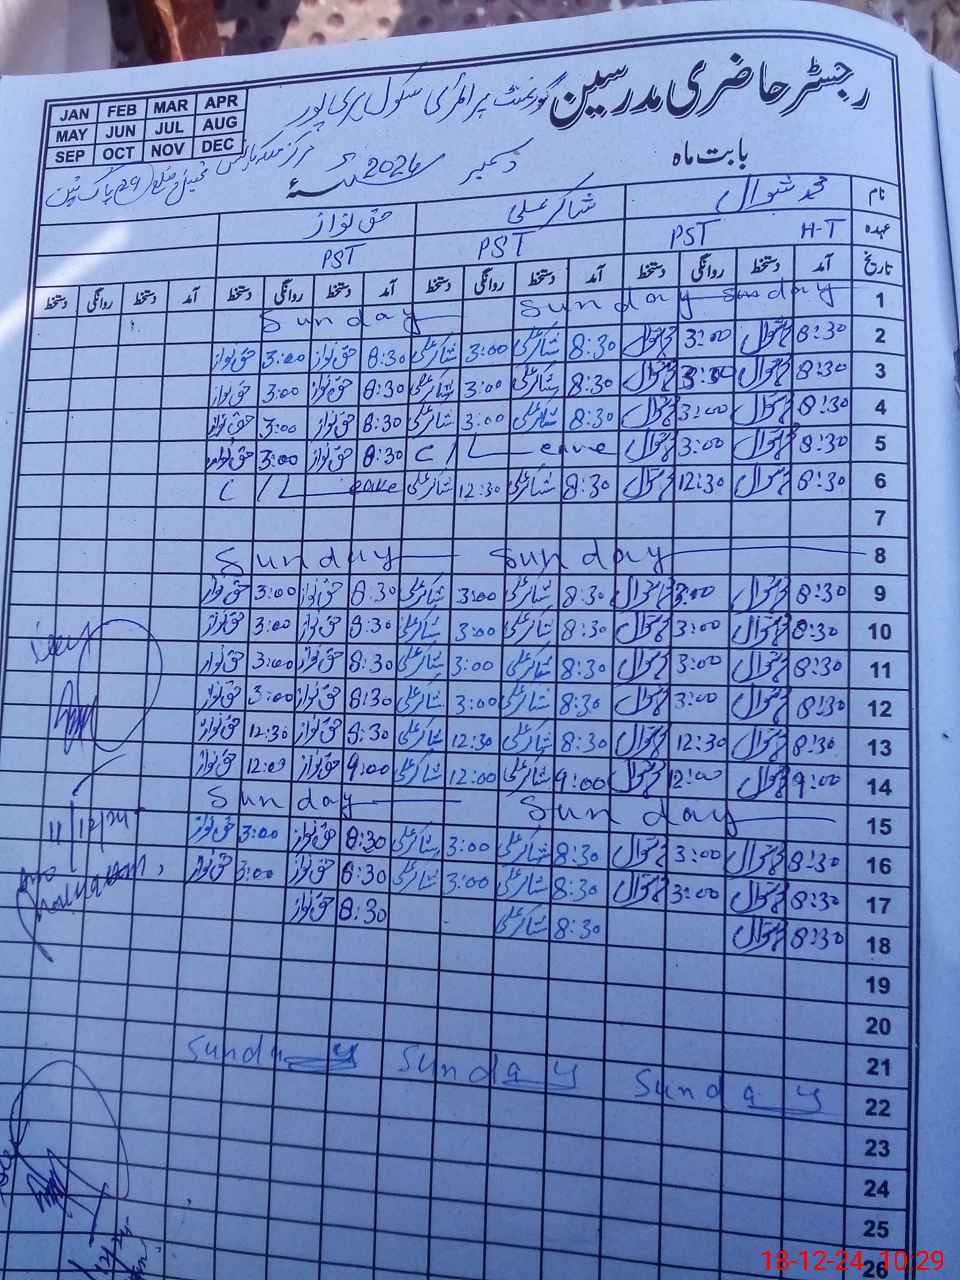 رجسٹر حاضری مدرسین گورنمنٹ پرائمری سکول ہری پور
JAN FEB MAR APR
MAY JUN JUL AUG
SEP OCT NOV DEC
بابت ماہ دسمبر 2024
نام محمد شوال شاکر علی حق نواز
عہدہ H-T PST PST PST
تاریخ آمد دستخط روانگی دستخط آمد دستخط روانگی دستخط آمد دستخط روانگی دستخط آمد دستخط روانگی دستخط
1 Sunday Sunday Sunday
2 8:30 شوال 3:00 شوال 8:30 شاکر علی 3:00 شاکر علی 8:30 حق نواز 3:00 حق نواز
3 8:30 شوال 3:00 شوال 8:30 شاکر علی 3:00 شاکر علی 8:30 حق نواز 3:00 حق نواز
4 8:30 شوال 3:00 شوال 8:30 شاکر علی 3:00 شاکر علی 8:30 حق نواز 3:00 حق نواز
5 8:30 شوال 3:00 شوال C/Leave 8:30 حق نواز 3:00 حق نواز
6 8:30 شوال 12:30 شوال 8:30 شاکر علی 12:30 شاکر علی C/Leave
7
8 Sunday Sunday
9 8:30 شوال 3:00 شوال 8:30 شاکر علی 3:00 شاکر علی 8:30 حق نواز 3:00 حق نواز
10 8:30 شوال 3:00 شوال 8:30 شاکر علی 3:00 شاکر علی 8:30 حق نواز 3:00 حق نواز
11 8:30 شوال 3:00 شوال 8:30 شاکر علی 3:00 شاکر علی 8:30 حق نواز 3:00 حق نواز
12 8:30 شوال 3:00 شوال 8:30 شاکر علی 3:00 شاکر علی 8:30 حق نواز 3:00 حق نواز
13 8:30 شوال 12:30 شوال 8:30 شاکر علی 12:30 شاکر علی 8:30 حق نواز 12:30 حق نواز
14 9:00 شوال 12:00 شوال 9:00 شاکر علی 12:00 شاکر علی 9:00 حق نواز 12:00 حق نواز
15 Sunday Sunday
16 8:30 شوال 3:00 شوال 8:30 شاکر علی 3:00 شاکر علی 8:30 حق نواز 3:00 حق نواز
17 8:30 شوال 3:00 شوال 8:30 شاکر علی 3:00 شاکر علی 8:30 حق نواز 3:00 حق نواز
18 8:30 شوال 8:30 شاکر علی 8:30 حق نواز
11/12/24
19
20
21
22 Sunday Sunday Sunday
23
24
25
26
18-12-24 10:29